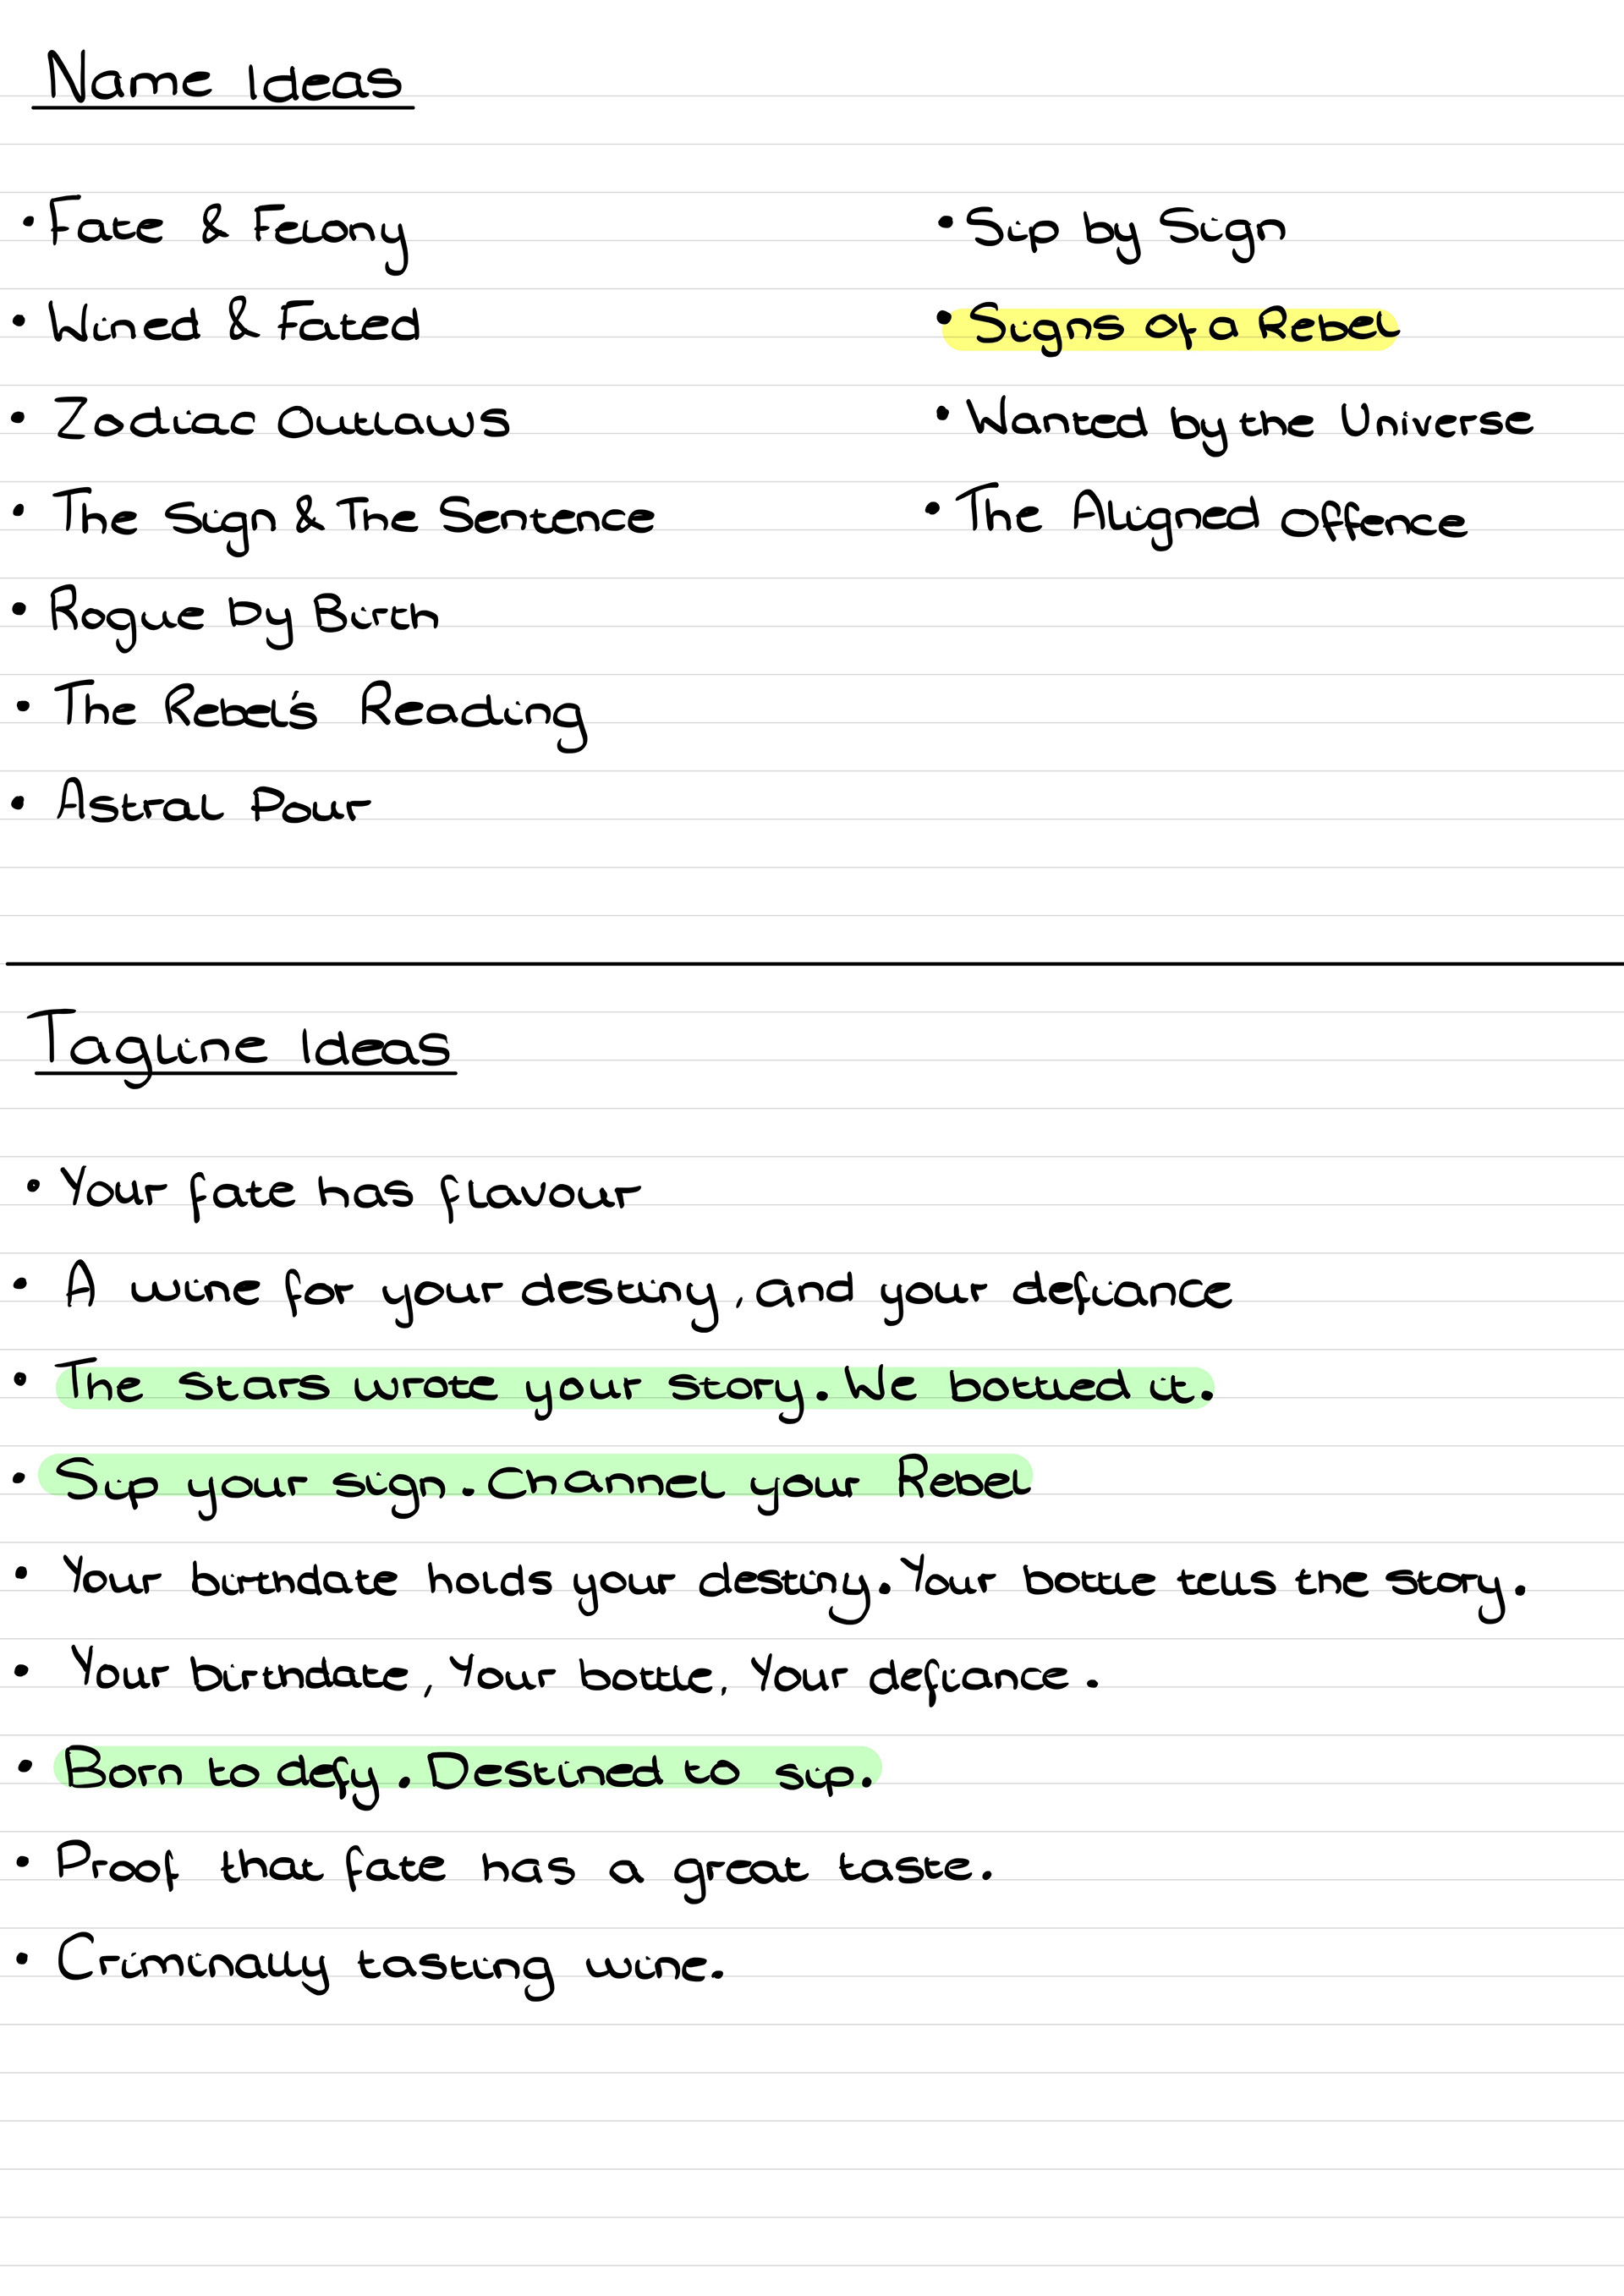 Name Ideas
• Fate & Felony
• Wined & Fated
• Zodiac Outlaws
• The Sign & The Sentence
• Rogue by Birth
• The Rebel's Reading
• Astral Pour
• Sip by Sign
• Signs Of a Rebel
• Wanted by the Universe
• The Aligned Offence
Tagline Ideas
• Your fate has flavour
• A wine for your destiny, and your defiance
• The Stars wrote your story. We bottled it.
• Sip your sign. Channel your Rebel
• Your birthdate holds your destiny. Your bottle tells the story.
• Your birthdate, Your bottle, Your defiance.
• Born to defy. Destined to sip.
• Proof that fate has a great taste.
• Criminally tasting wine.